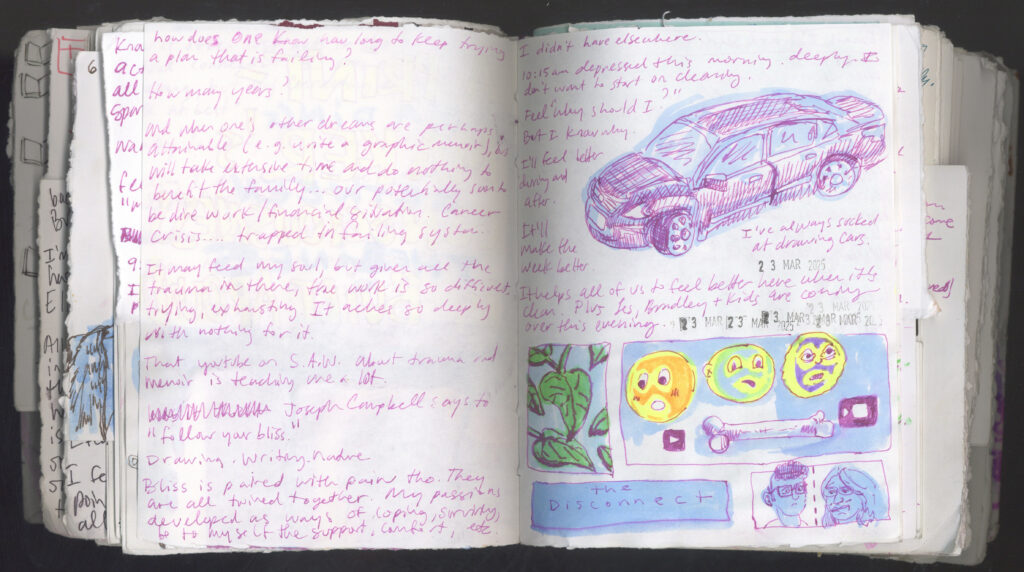 how does ONE know how long to keep trying
a plan that is failing?
How many years?
And when one's other dreams are perhaps
attainable (e.g. write a graphic memoir),
will take extensive time and do nothing to
benefit the family... our potentially soon to
be dire work/financial situation. Cancer
Crisis.... trapped in failing system.
It may feed my soul, but given all the
trauma in there, the work is so difficult,
trying, exhausting. It aches so deeply
with nothing for it.
That youtube on S.A.W. about trauma and
memoir is teaching me a lot.
Joseph Campbell says to
"follow your bliss."
Drawing. Writing. Nature
Bliss is paired with pain tho. They
are all twined together. My passions
developed as ways of coping, surviving,
to myself the support, comfort, etc.
Kno
act
all
Spor
wa
fe
9.
I
6
bo
Bu
I'm
E
I fe
poin
all
I didn't have elsewhere.
10:15 am depressed this morning. deeply.
don't want to start on cleaning.
Feel "why should I?"
But I know why.
I'll feel better
during and
after.
It'll
make the
week better.
I've always sucked
at drawing cars.
23 MAR 2025
It helps all of us to feel better here when it's
clean. Plus Les, Bradley + kids are coming
over this evening.
23 MAR 2025
23 MAR 23 MAR 2025 23 MAR 23 MAR 2025
the
Disconnect